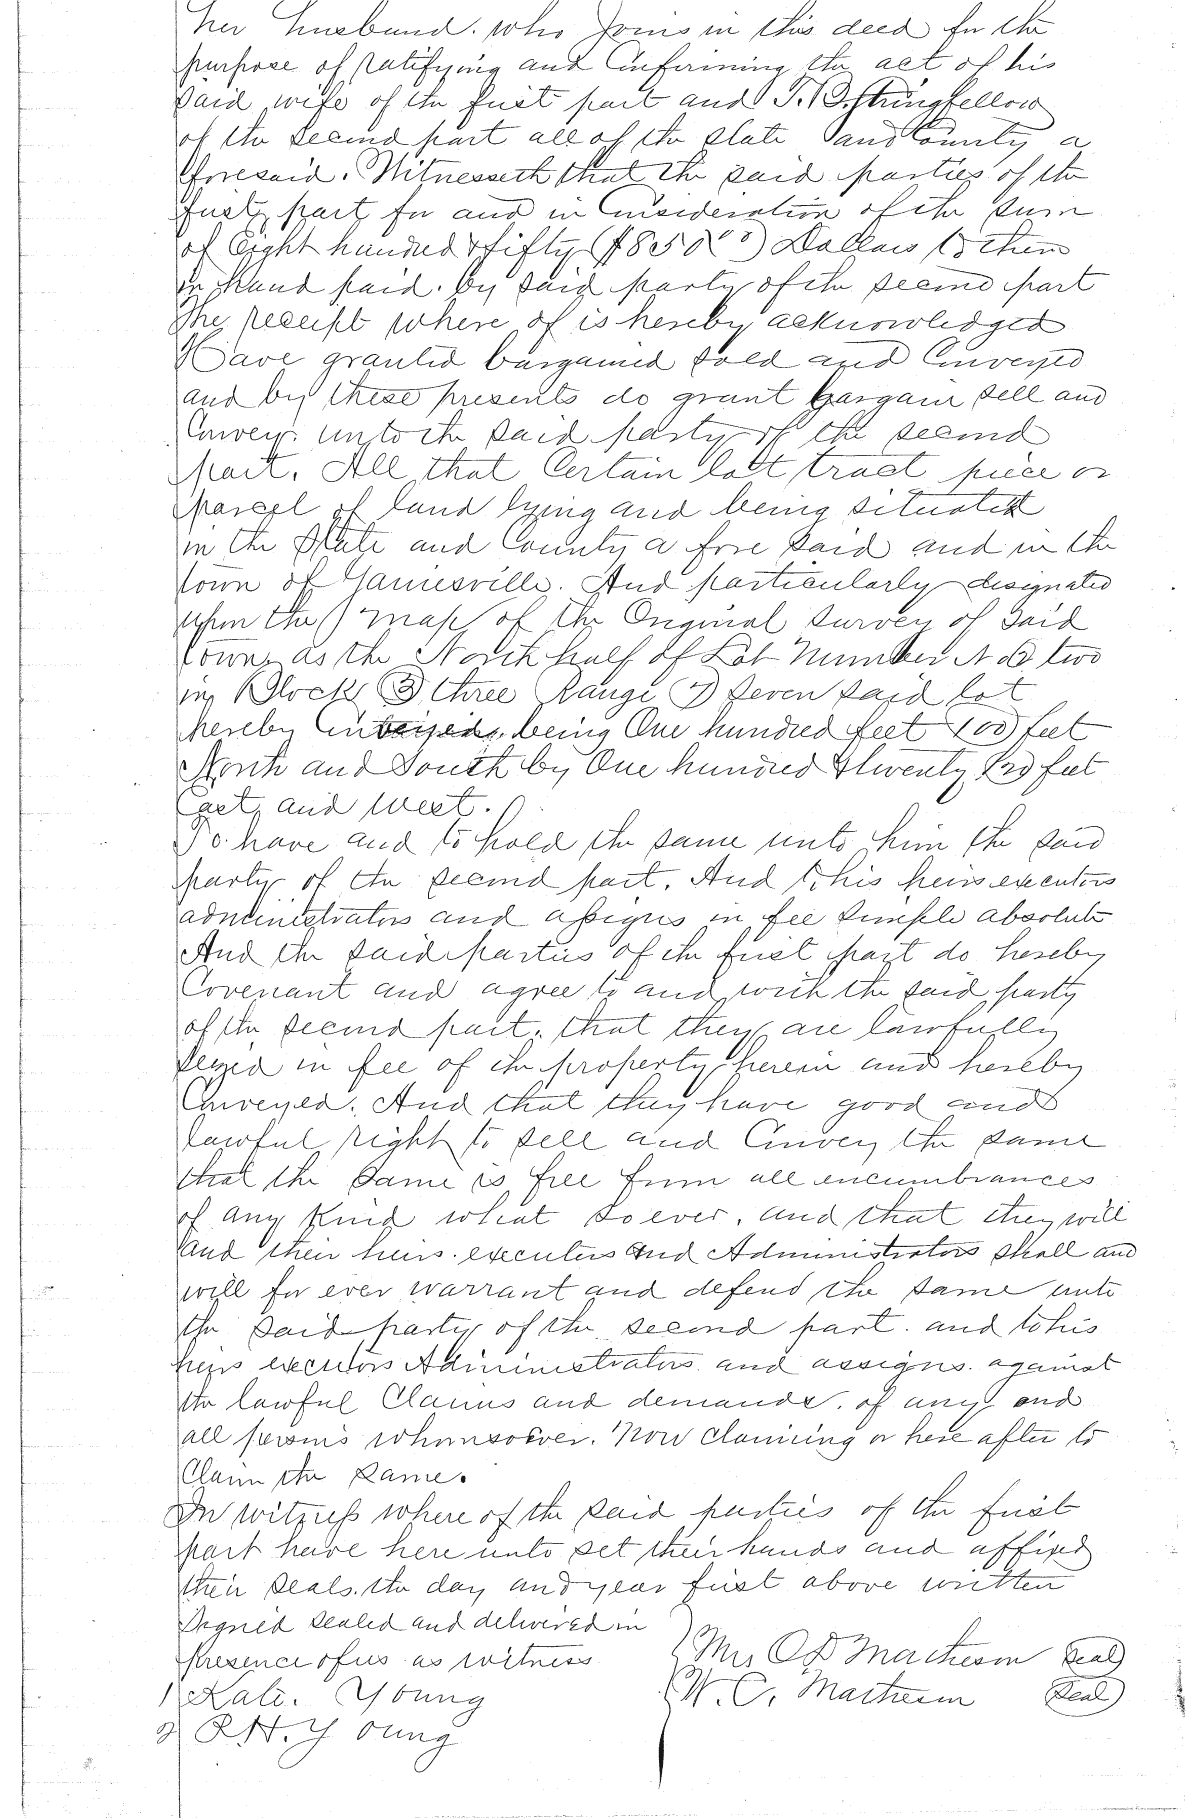 her husband. who joins in this deed for the
purpose of ratifying and Confirming the act of his
said wife of the first part and Stringfellow
of the second part all of the state and County a
foresaid. Witnesseth that the said parties of the
first part for and in Consideration of the sum
of Eight hundred & fifty ($850 00) Dollars to them
in hand paid. by said party of the second part
the receipt where of is hereby acknowledged
Have granted bargained sold and Conveyed
and by these presents do grant bargain sell and
Convey. unto the said party of the second
part. All that Certain lott tract piece or
parcel of land lying and being situated
in the State and County a fore said and in the
town of Gainesville. And particularly designated
upon the map of the Original survey of said
town as the North half of Lot Number two
in Block (3) three Range (7) seven said lot
hereby being One hundred feet (100) feet
North and South by One hundred & twenty (120) feet
East and West.
To have and to hold the same unto him the said
party of the second part. And to his heirs executors
administrators and assigns in fee simple absolute
And the said parties of the first part do hereby
Covenant and agree to and with the said party
of the second part. that they are lawfully
seized in fee of the property herein and hereby
Conveyed. And that they have good and
lawful right to sell and Convey the same
that the same is free from all encumbrances
of any kind what so ever. and that they will
and their heirs. executors and Administrators shall and
will for ever warrant and defend the same unto
the said party of the second part. and to his
heirs executors Administrators and assigns. against
the lawful Claims and demands. of any and
all persons whomsoever. Now claiming or here after to
Claim the same.
In witness where of the said parties of the first
part have here unto set their hands and affixed
their seals. the day and year first above written
Signed sealed and delivered in
presence of us as witness
Mrs C D Matheson (Seal)
1 Kate. Young
W. C. Matheson (Seal)
2 R H. Young